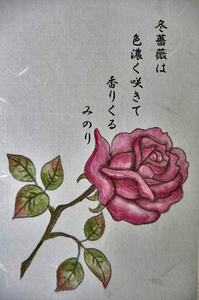 冬薔薇は
色濃く咲きて
香りくる
みのり